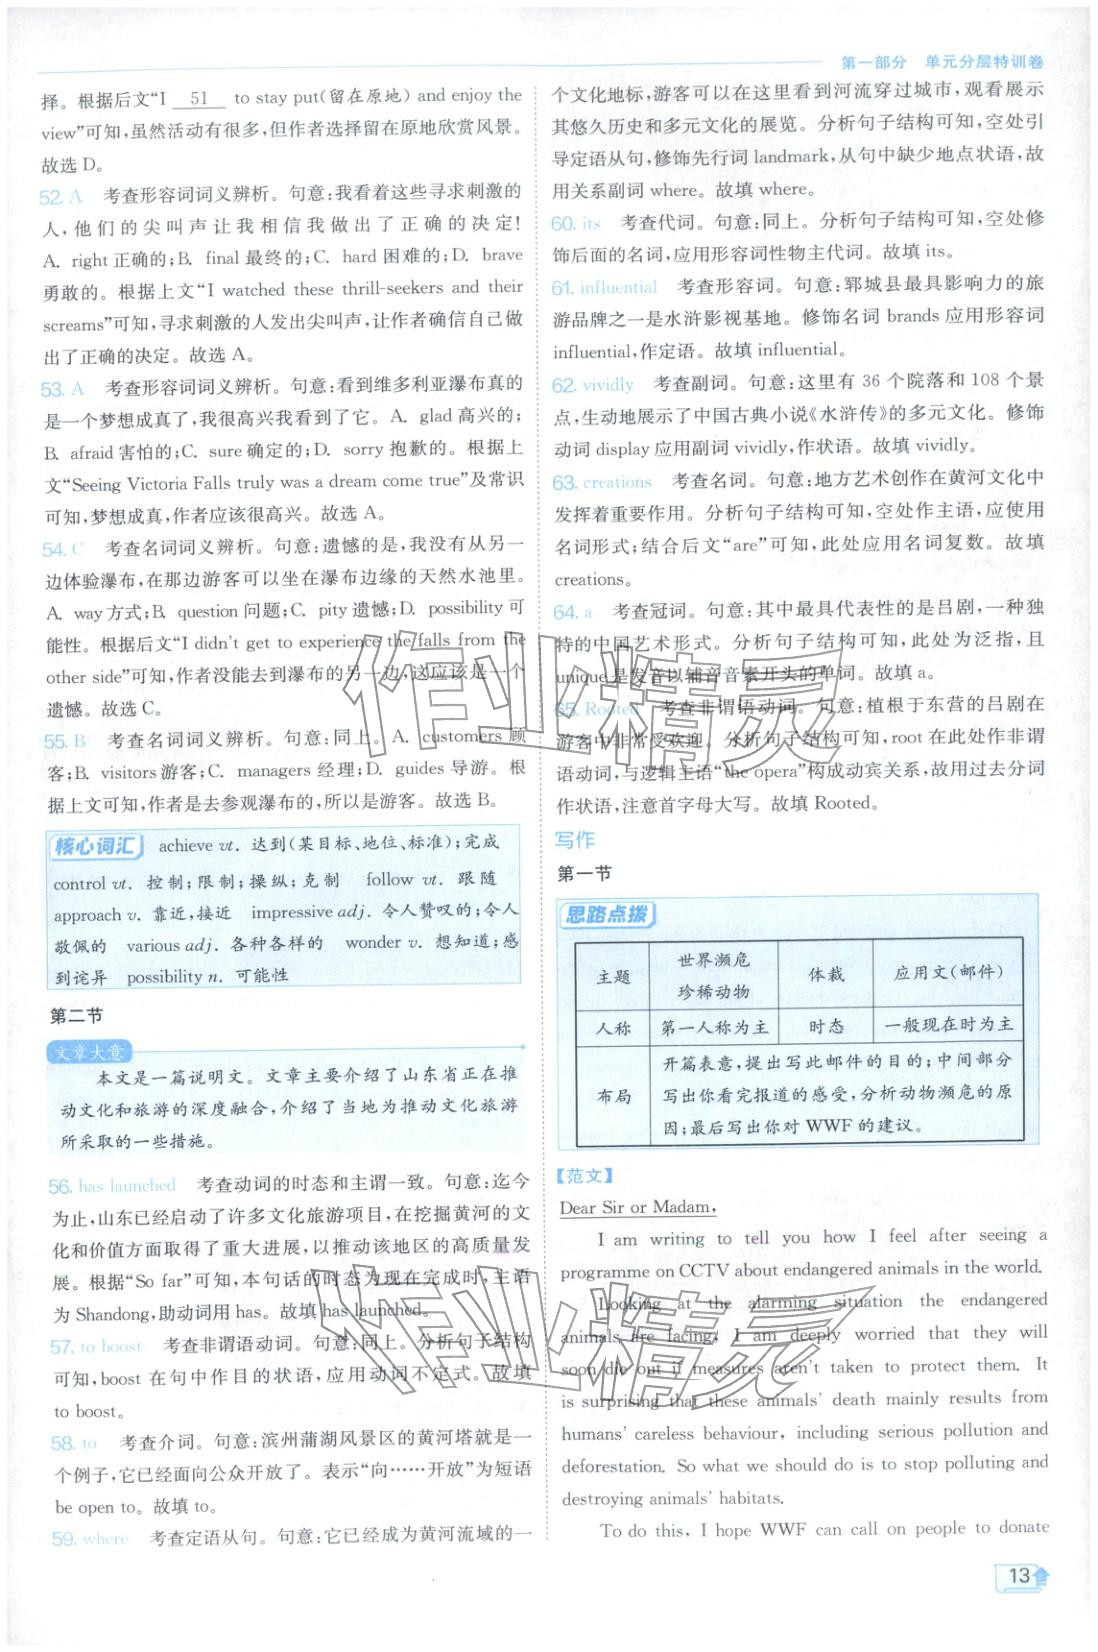 第一部分　单元分层特训卷
择。根据后文“I 51 to stay put(留在原地) and enjoy the
view”可知,虽然活动有很多,但作者选择留在原地欣赏风景。
故选 D。
52. A　考查形容词词义辨析。句意:我看着这些寻求刺激的
人,他们的尖叫声让我相信我做出了正确的决定!
A. right 正确的;B. final 最终的;C. hard 困难的;D. brave
勇敢的。根据上文“I watched these thrill-seekers and their
screams”可知,寻求刺激的人发出尖叫声,让作者确信自己做
出了正确的决定。故选 A。
53. A　考查形容词词义辨析。句意:看到维多利亚瀑布真的
是一个梦想成真了,我很高兴我看到了它。A. glad 高兴的;
B. afraid 害怕的;C. sure 确定的;D. sorry 抱歉的。根据上
文“Seeing Victoria Falls truly was a dream come true”及常识
可知,梦想成真,作者应该很高兴。故选 A。
54. C　考查名词词义辨析。句意:遗憾的是,我没有从另一
边体验瀑布,在那边游客可以坐在瀑布边缘的天然水池里。
A. way 方式;B. question 问题;C. pity 遗憾;D. possibility 可
能性。根据后文“I didn't get to experience the falls from the
other side”可知,作者没能去到瀑布的另一边,这应该是一个
遗憾。故选 C。
55. B　考查名词词义辨析。句意:同上。A. customers 顾
客;B. visitors 游客;C. managers 经理;D. guides 导游。根
据上文可知,作者是去参观瀑布的,所以是游客。故选 B。
核心词汇　achieve vt. 达到(某目标、地位、标准);完成
control vt. 控制;限制;操纵;克制　follow vt. 跟随
approach v. 靠近,接近　impressive adj. 令人赞叹的;令人
敬佩的　various adj. 各种各样的　wonder v. 想知道;感
到诧异　possibility n. 可能性
第二节
文章大意
本文是一篇说明文。文章主要介绍了山东省正在推
动文化和旅游的深度融合,介绍了当地为推动文化旅游
所采取的一些措施。
56. has launched　考查动词的时态和主谓一致。句意:迄今
为止,山东已经启动了许多文化旅游项目,在挖掘黄河的文
化和价值方面取得了重大进展,以推动该地区的高质量发
展。根据“So far”可知,本句话的时态为现在完成时,主语
为 Shandong,助动词用 has。故填 has launched。
57. to boost　考查非谓语动词。句意:同上。分析句子结构
可知,boost 在句中作目的状语,应用动词不定式。故填
to boost。
58. to　考查介词。句意:滨州蒲湖风景区的黄河塔就是一
个例子,它已经面向公众开放了。表示“向……开放”为短语
be open to。故填 to。
59. where　考查定语从句。句意:它已经成为黄河流域的一
个文化地标,游客可以在这里看到河流穿过城市,观看展示
其悠久历史和多元文化的展览。分析句子结构可知,空处引
导定语从句,修饰先行词 landmark,从句中缺少地点状语,故
用关系副词 where。故填 where。
60. its　考查代词。句意:同上。分析句子结构可知,空处修
饰后面的名词,应用形容词性物主代词。故填 its。
61. influential　考查形容词。句意:郓城县最具影响力的旅
游品牌之一是水浒影视基地。修饰名词 brands 应用形容词
influential,作定语。故填 influential。
62. vividly　考查副词。句意:这里有 36 个院落和 108 个景
点,生动地展示了中国古典小说《水浒传》的多元文化。修饰
动词 display 应用副词 vividly,作状语。故填 vividly。
63. creations　考查名词。句意:地方艺术创作在黄河文化中
发挥着重要作用。分析句子结构可知,空处作主语,应使用
名词形式;结合后文“are”可知,此处应用名词复数。故填
creations。
64. a　考查冠词。句意:其中最具代表性的是吕剧,一种独
特的中国艺术形式。分析句子结构可知,此处为泛指,且
unique 是发音以辅音音素开头的单词。故填 a。
65. Rooted　考查非谓语动词。句意:植根于东营的吕剧在
游客中非常受欢迎。分析句子结构可知,root 在此处作非谓
语动词,与逻辑主语“the opera”构成动宾关系,故用过去分词
作状语,注意首字母大写。故填 Rooted。
写作
第一节
思路点拨
主题　世界濒危珍稀动物　体裁　应用文(邮件)
人称　第一人称为主　时态　一般现在时为主
布局　开篇表意,提出写此邮件的目的;中间部分
写出你看完报道的感受,分析动物濒危的原
因;最后写出你对 WWF 的建议。
【范文】
Dear Sir or Madam,
I am writing to tell you how I feel after seeing a
programme on CCTV about endangered animals in the world.
Looking at the alarming situation the endangered
animals are facing, I am deeply worried that they will
soon die out if measures aren't taken to protect them. It
is surprising that these animals' death mainly results from
humans' careless behaviour, including serious pollution and
deforestation. So what we should do is to stop polluting and
destroying animals' habitats.
To do this, I hope WWF can call on people to donate
13
作业精灵
作业精灵